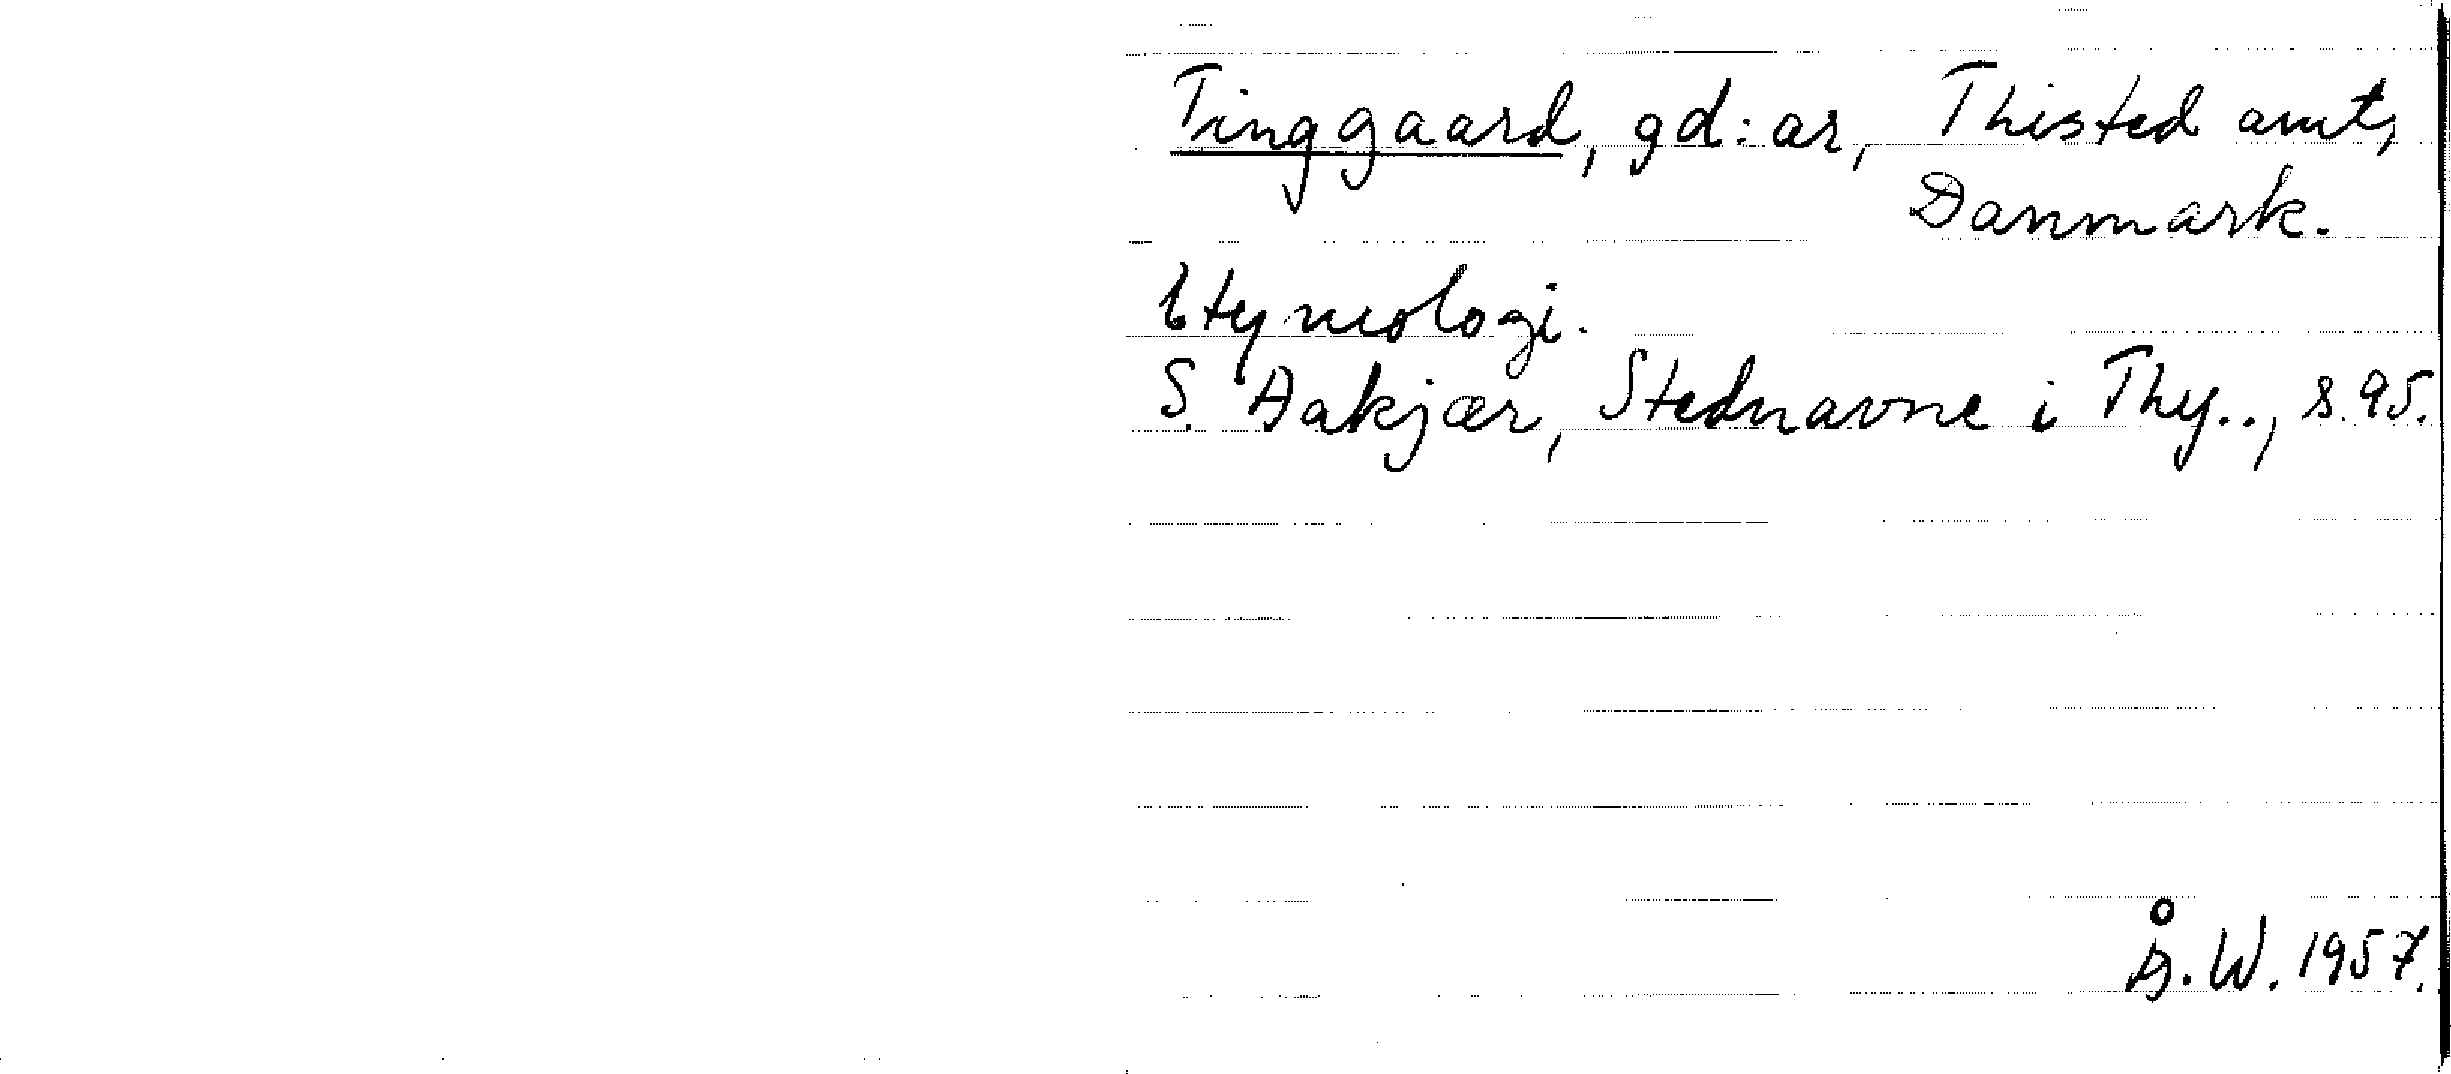 Tinggaard, gd:ar, Thisted amt,
Danmark.
Etymologi.
S. Aakjær, Stednavne i Thy.., s.95.
Å.W. 1957.